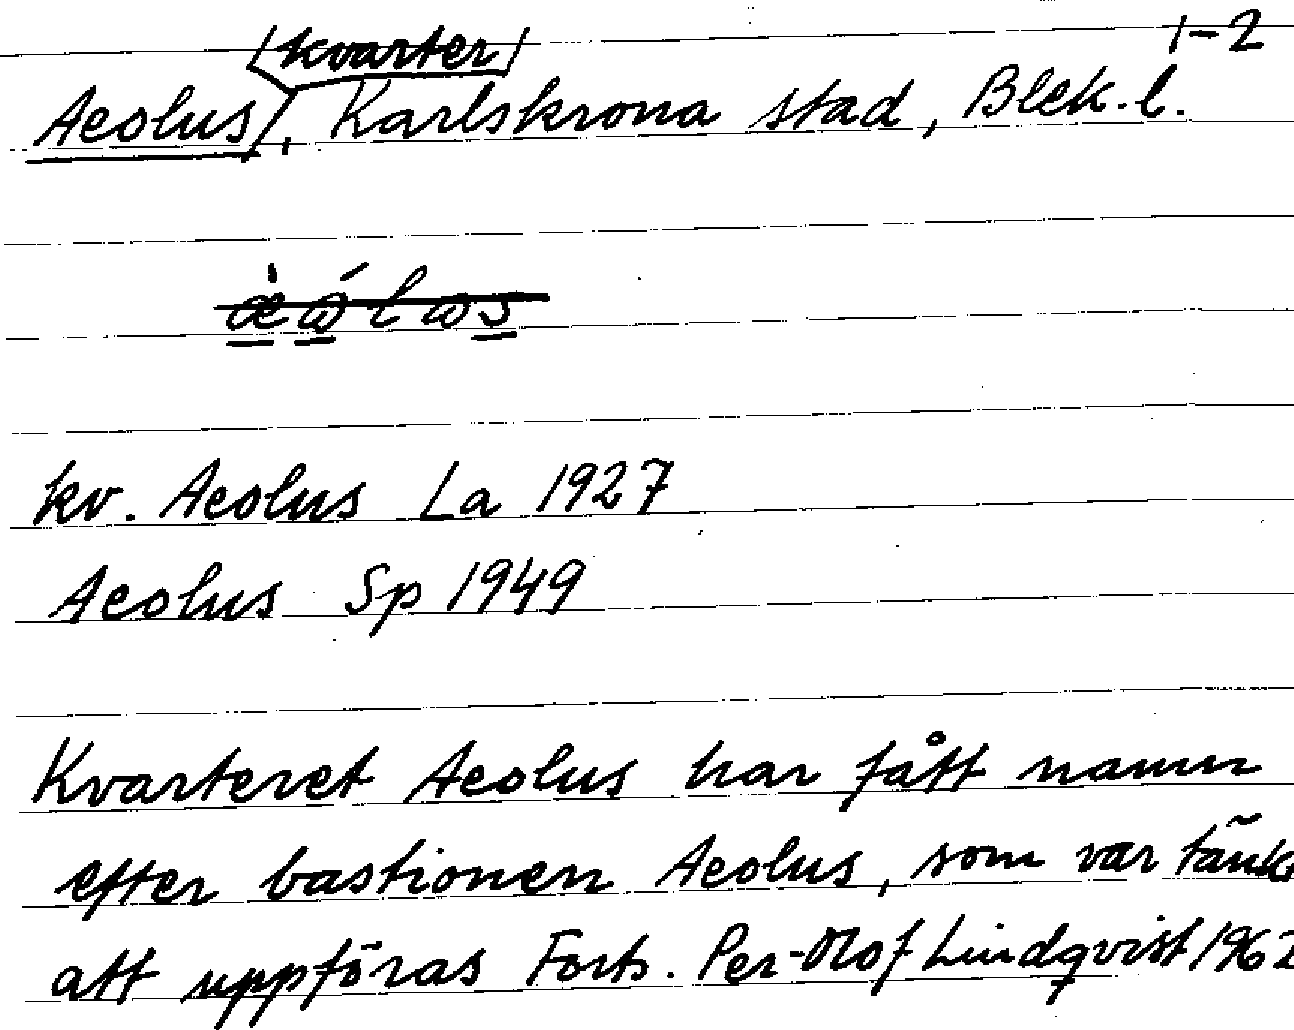 /kvarter/ 1-2
Aeolus/, Karlskrona stad, Blek. l.
kv. Aeolus La 1927
Aeolus Sp 1949
Kvarteret Aeolus har fått namn
efter bastionen Aeolus, som var tänk
att uppföras Forts. Per-Olof Lindqvist 1962